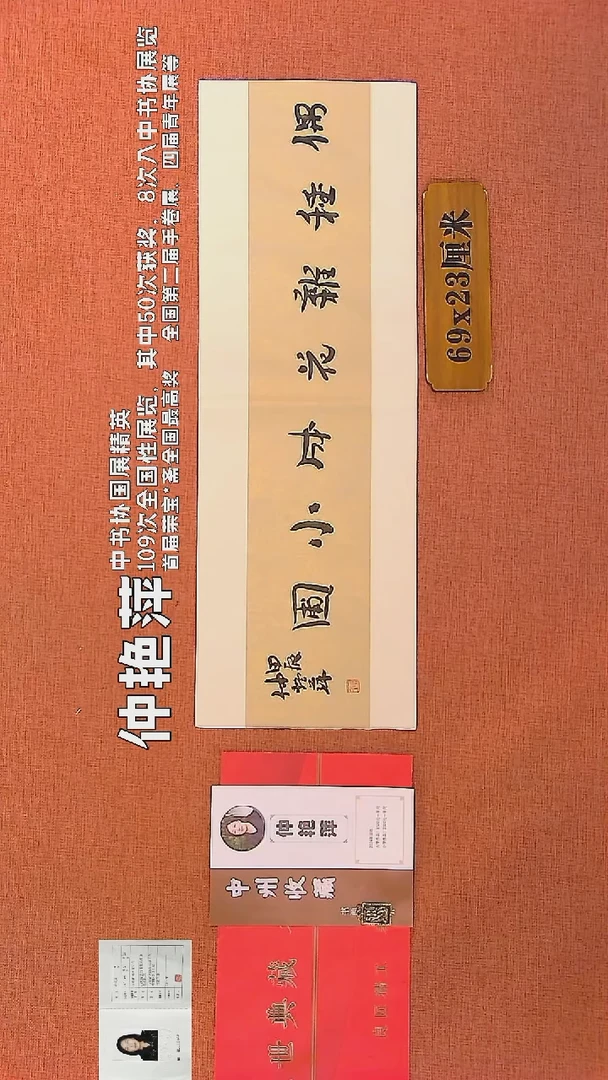 仲艳萍
中书协国展精英
109次全国性展览，其中50次获奖，8次入中书协展览
首届荣宝*斋全国最高奖 全国第二届手卷展、四届青年展等
偶種雜花成小圃
甲辰
仲艳萍
69x23厘米
仲艳萍
中州收藏
世典藏